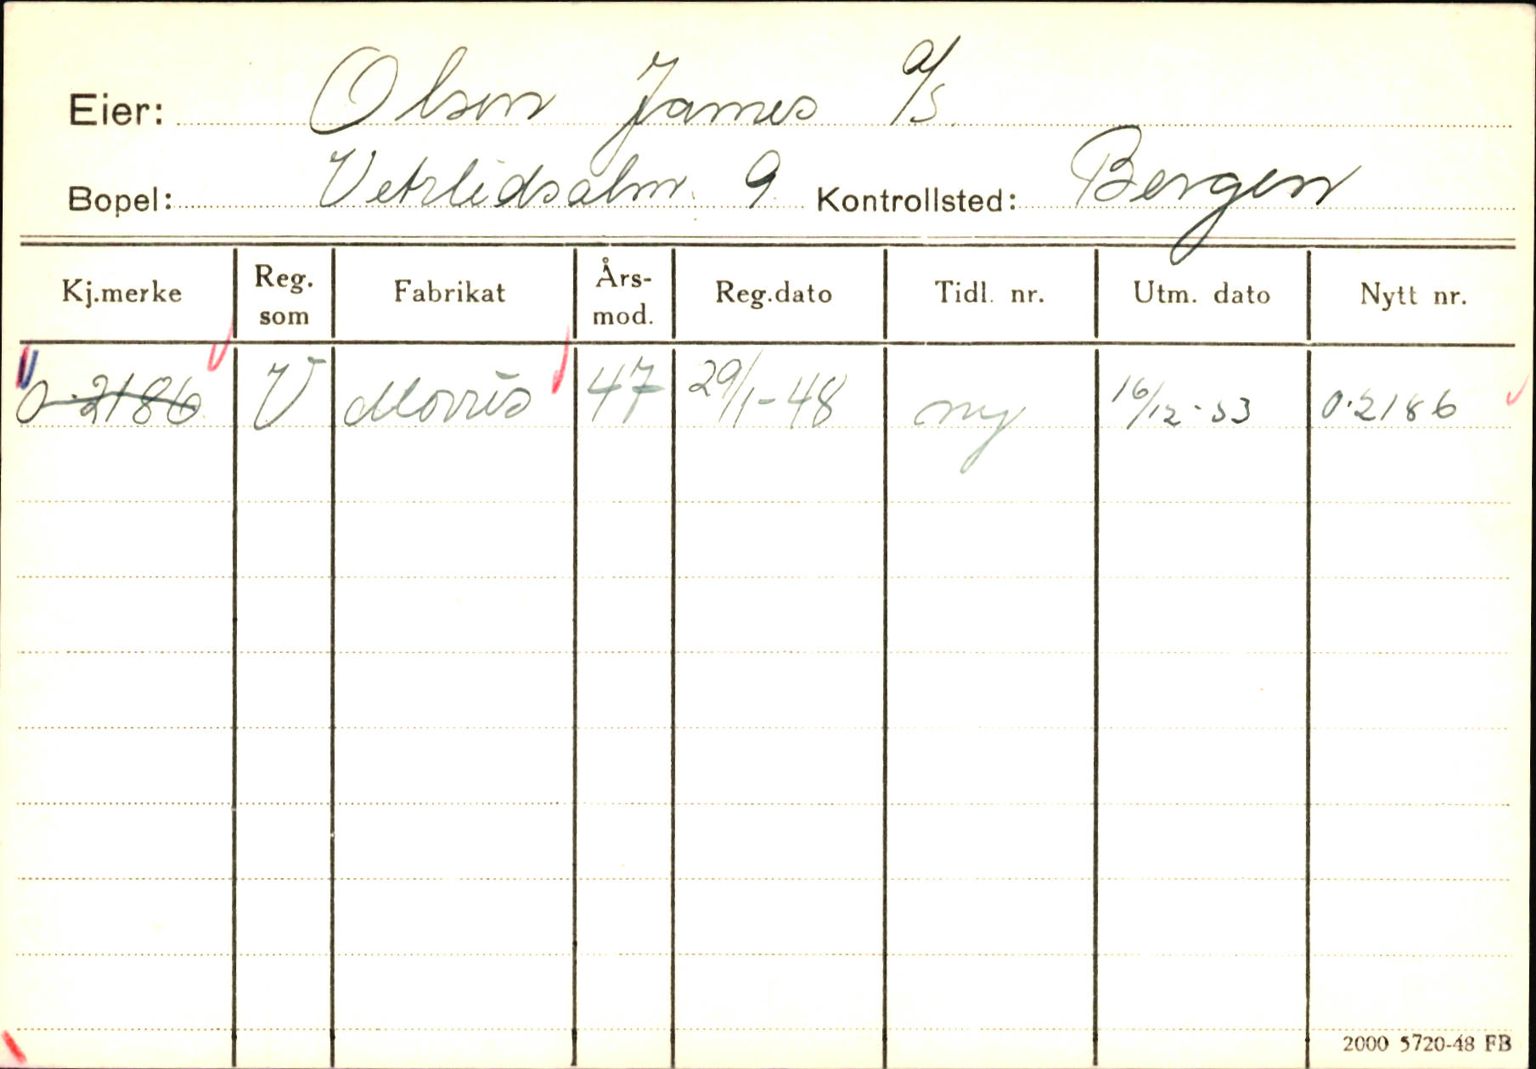 Eier: Olsen James A/S
Bopel: Vetrlidsalm. 9 Kontrollsted: Bergen
Kj.merke Reg. som Fabrikat Års-mod. Reg.dato Tidl. nr. Utm. dato Nytt nr.
O-2186 V Morris 47 29/1-48 ny 16/12-53 O-2186
2000 5720-48 FB